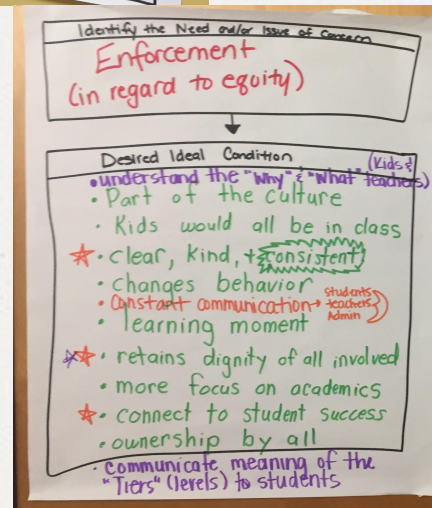 Identify the Need and/or Issue of Concern
Enforcement
(in regard to equity)
Desired Ideal Condition
(Kids &
• understand the "Why" & "What" teachers)
• Part of the culture
• Kids would all be in class
• clear, kind, + consistent
• changes behavior
• constant communication → students
teachers
Admin
• learning moment
• retains dignity of all involved
• more focus on academics
• connect to student success
• ownership by all
• communicate meaning of the
"Tiers" (levels) to students